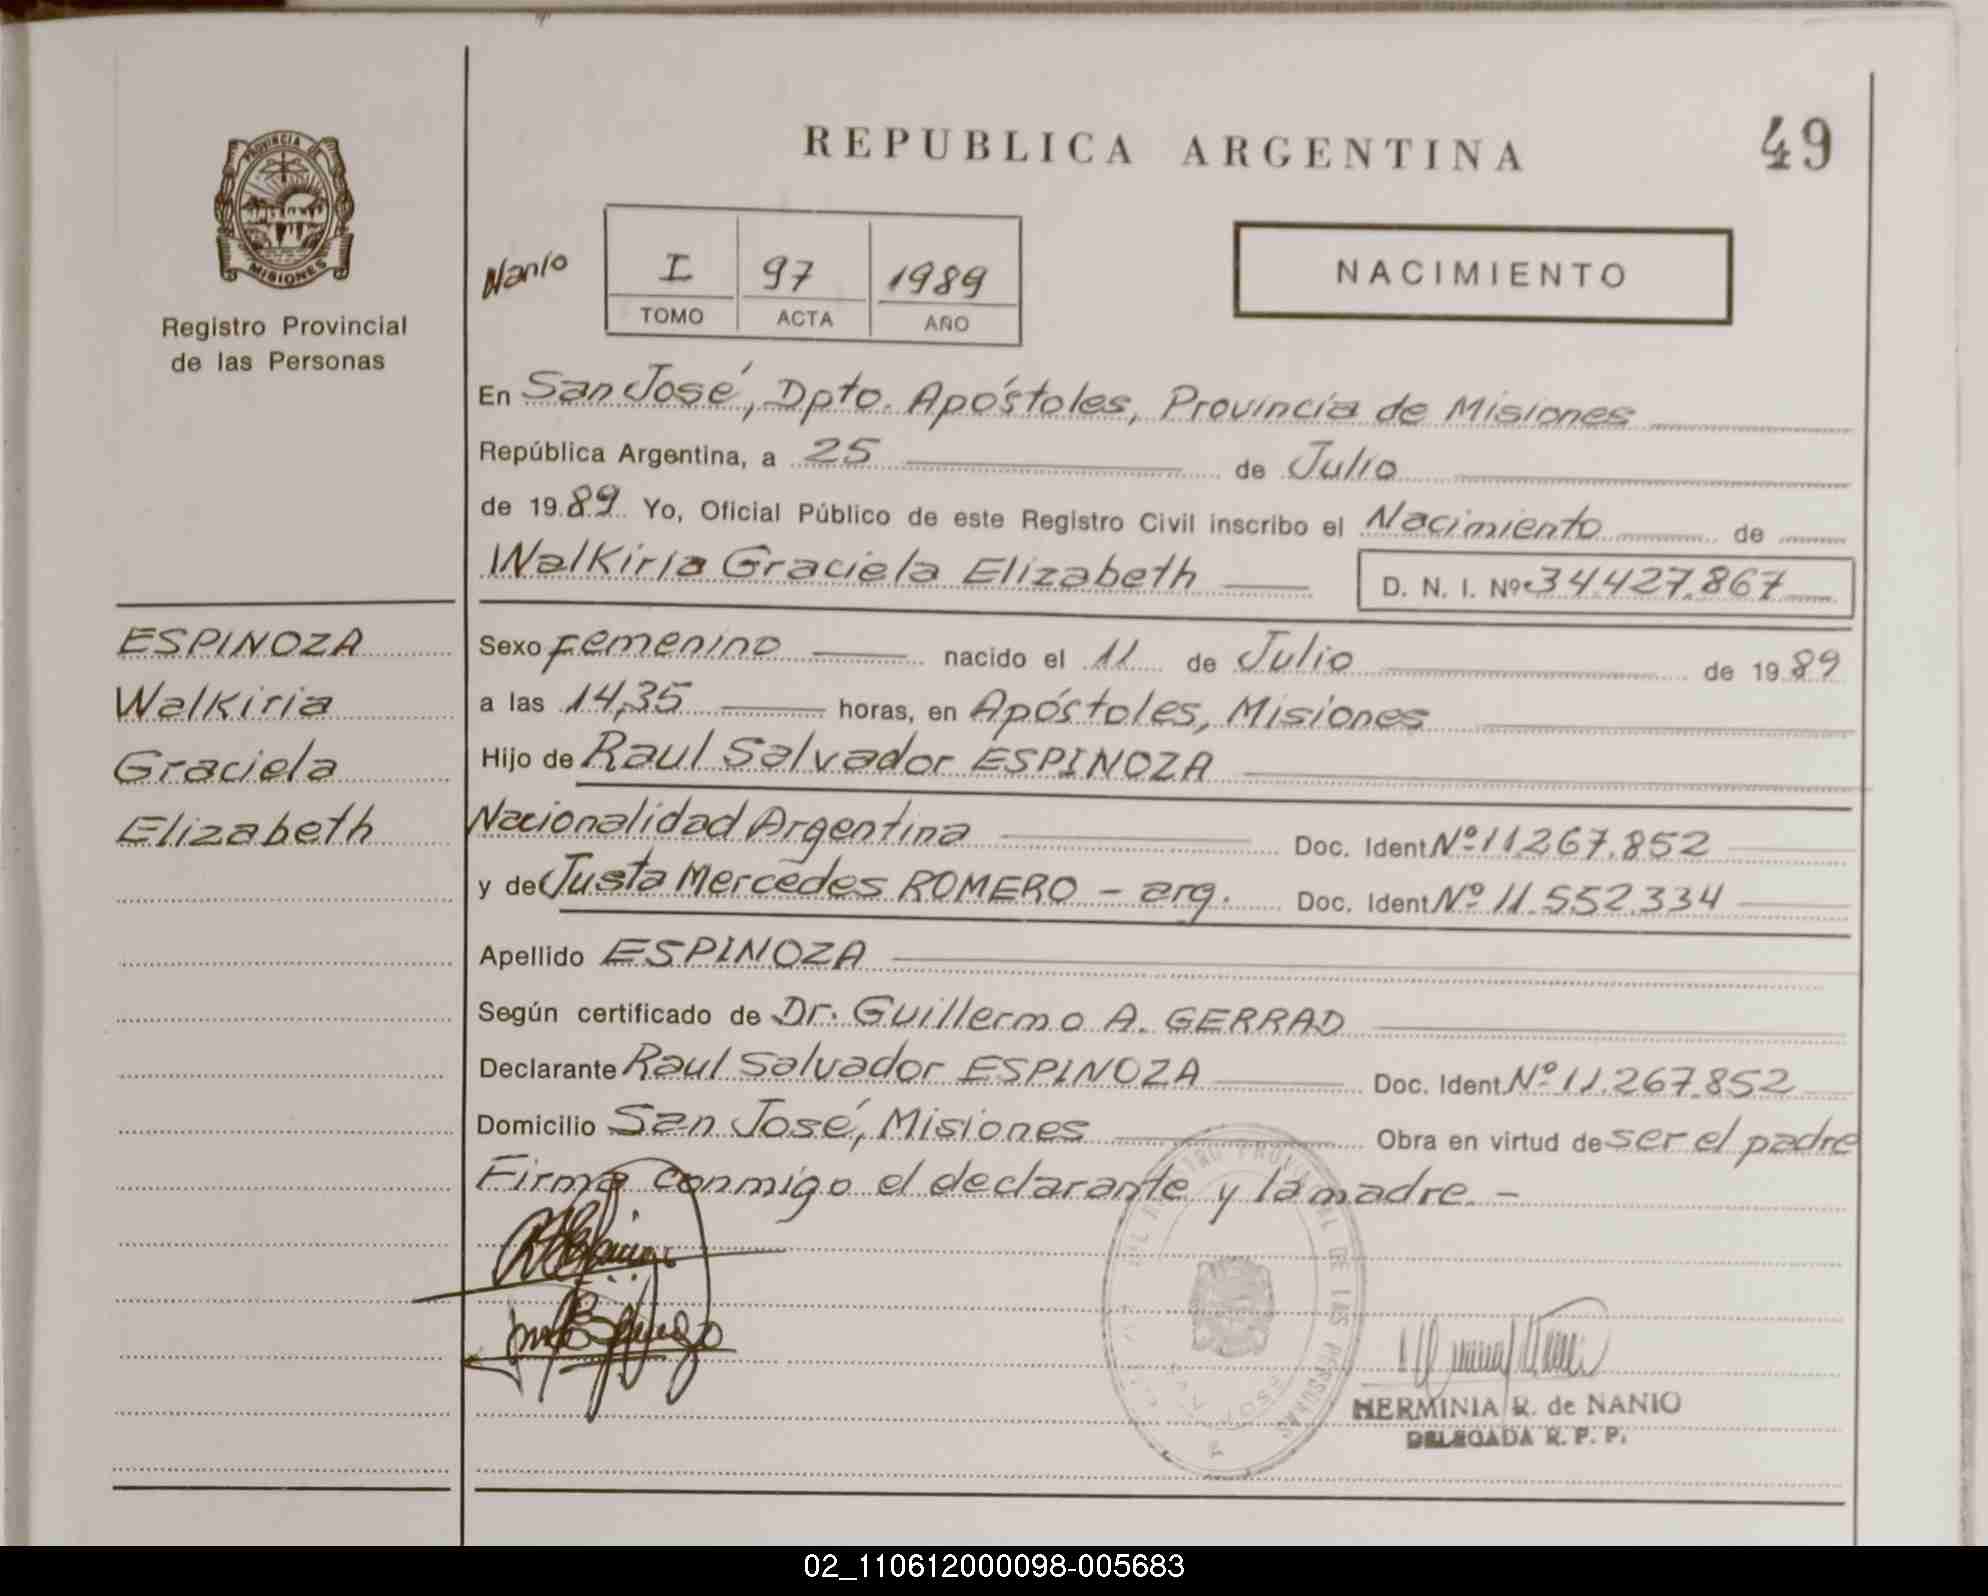 PROVINCIA DE
MISIONES
Registro Provincial
de las Personas
ESPINOZA
Walkiria
Graciela
Elizabeth
REPUBLICA ARGENTINA
49
Nanio
I 97 1989
TOMO ACTA AÑO
NACIMIENTO
En San José, Dpto. Apóstoles, Provincia de Misiones
República Argentina, a 25 de Julio
de 1989 Yo, Oficial Público de este Registro Civil inscribo el Nacimiento de
Walkiria Graciela Elizabeth D. N. I. Nº 34.427.867
Sexo Femenino nacido el 11 de Julio de 1989
a las 14,35 horas, en Apóstoles, Misiones
Hijo de Raul Salvador ESPINOZA
Nacionalidad Argentina Doc. Ident. Nº 11.267.852
y de Justa Mercedes ROMERO - arg. Doc. Ident. Nº 11.552.334
Apellido ESPINOZA
Según certificado de Dr. Guillermo A. GERRAD
Declarante Raul Salvador ESPINOZA Doc. Ident. Nº 11.267.852
Domicilio San José, Misiones Obra en virtud de ser el padre
Firma conmigo el declarante y la madre. -
HERMINIA R. de NANIO
DELEGADA R. P. P.
02_110612000098-005683